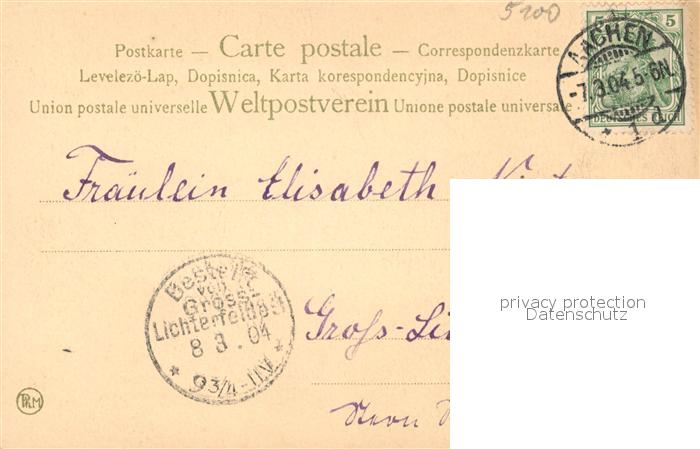 5100
5 5
DEUTSCHES REICH
AACHEN
7.3.04.5-6N
* 1 d
Postkarte — Carte postale — Correspondenzkarte
Levelező-Lap, Dopisnica, Karta korespondencyjna, Dopisnice
Union postale universelle Weltpostverein Unione postale universale
Fräulein Elisabeth
privacy protection
Datenschutz
Bestellt
vom
Gross-
Lichterfelde
8 3. 04
* 9 3/4-11V. *
Gross-Li
PRM